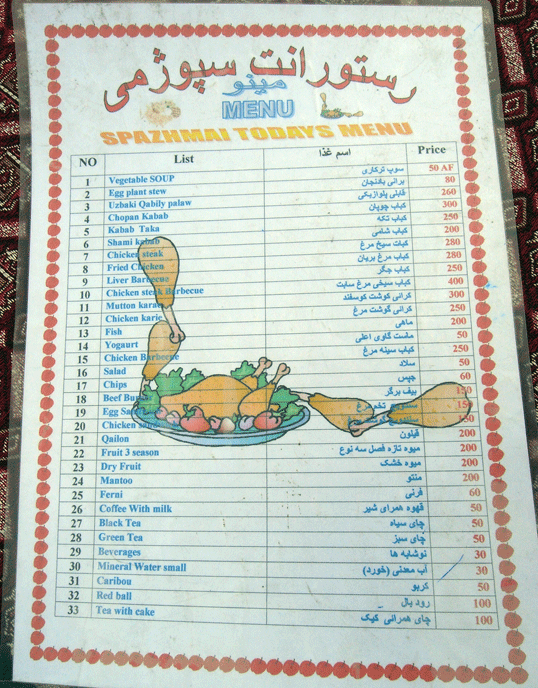 رستورانت سپوژمی
مینو
MENU
SPAZHMAI TODAYS MENU
NO List اسم غذا Price
1 Vegetable SOUP سوپ ترکاری 50 AF
2 Egg plant stew برانی بادنجان 80
3 Uzbaki Qabily palaw قابلی پلوازبکی 260
4 Chopan Kabab کباب چوپان 300
5 Kabab Taka کباب تکه 250
6 Shami kabab کباب شامی 200
7 Chicken steak کباب سیخ مرغ 280
8 Fried Chicken کباب مرغ بریان 280
9 Liver Barbecue کباب جگر 250
10 Chicken steak Barbecue کباب سیخی مرغ سابت 400
11 Mutton karai کرائی گوشت کوسفند 300
12 Chicken karie کرائی گوشت مرغ 250
13 Fish ماهی 200
14 Yogaurt ماست گاوی اعلی 50
15 Chicken Barbecue کباب سینه مرغ 250
16 Salad سلاد 50
17 Chips چپس 60
18 Beef بیف برگر 150
19 Egg تخم مرغ 150
20 Chicken 150
21 Qailon قیلون 200
22 Fruit 3 season میوه تازه فصل سه نوع 200
23 Dry Fruit میوه خشک 200
24 Mantoo منتو 200
25 Ferni فرنی 60
26 Coffee With milk قهوه همرای شیر 50
27 Black Tea چای سیاه 50
28 Green Tea چای سبز 50
29 Beverages نوشابه ها 30
30 Mineral Water small آب معدنی (خورد) 30
31 Caribou کربو 50
32 Red ball رود بال 100
33 Tea with cake چای همرائی کیک 100